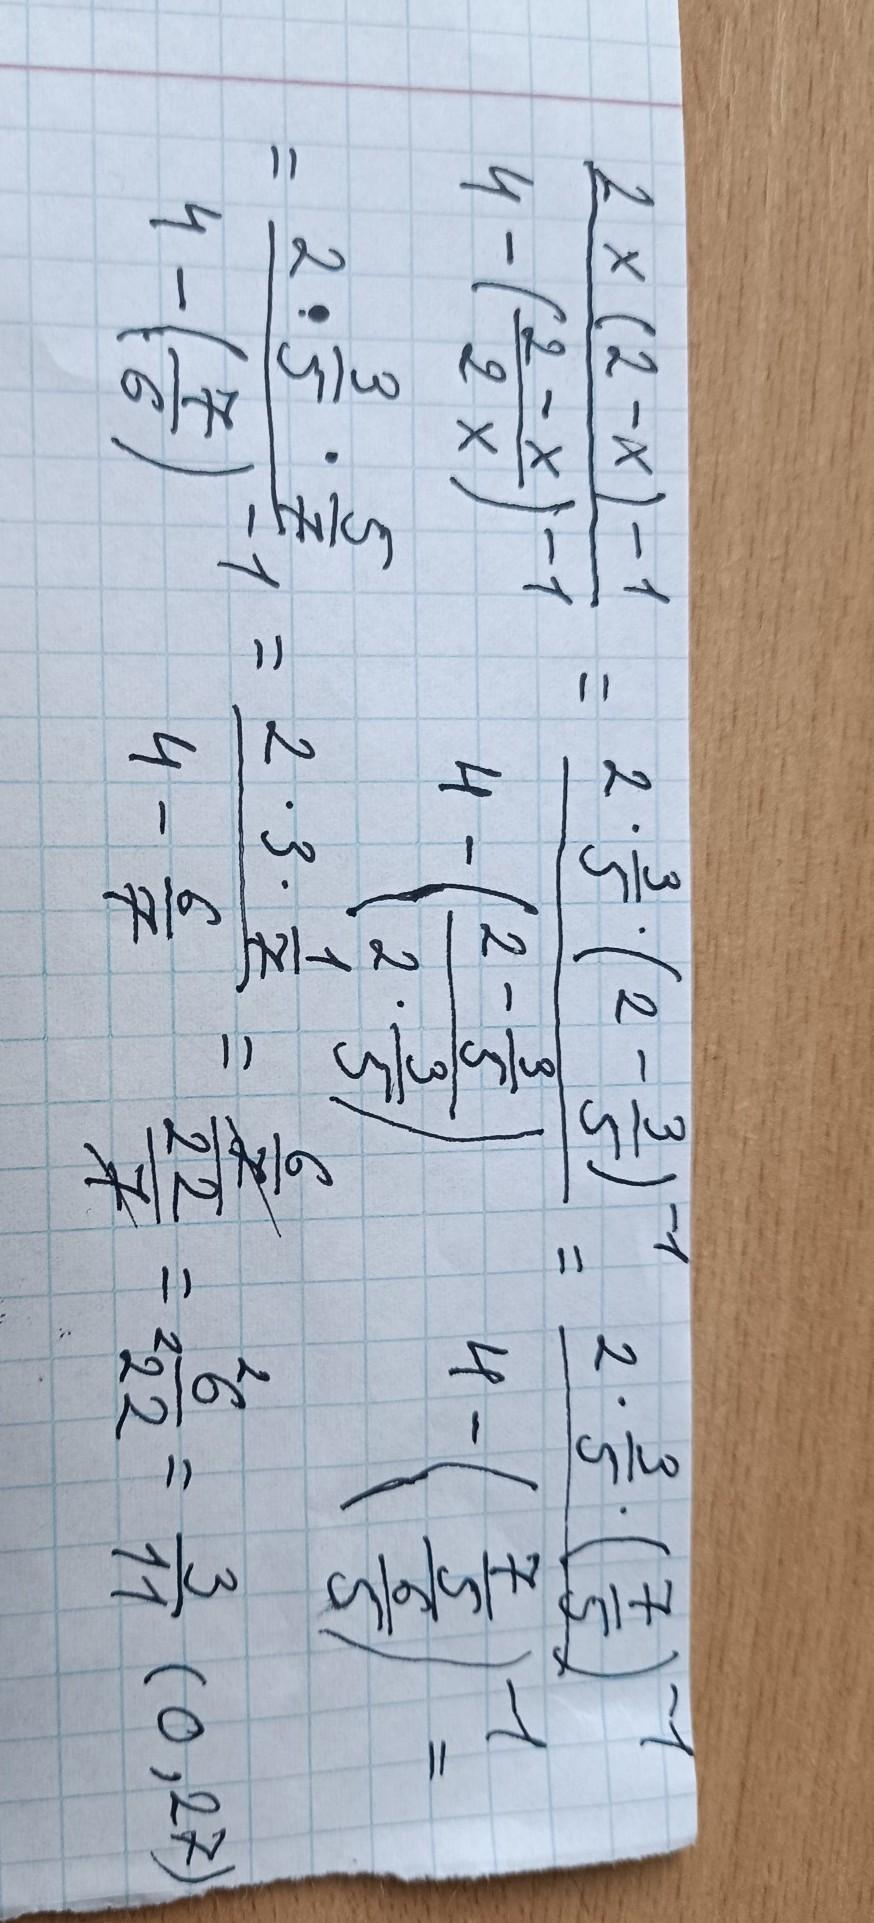 \frac{2x(2-x)^{-1}}{4-\left(\frac{2-x}{2x}\right)^{-1}} = \frac{2 \cdot \frac{3}{5} \cdot \left(2-\frac{3}{5}\right)^{-1}}{4-\left(\frac{2-\frac{3}{5}}{2 \cdot \frac{3}{5}}\right)} = \frac{2 \cdot \frac{3}{5} \cdot \left(\frac{7}{5}\right)^{-1}}{4-\left(\frac{\frac{7}{5}}{\frac{6}{5}}\right)^{-1}} =
= \frac{2 \cdot \frac{3}{5} \cdot \frac{5}{7}}{4-\left(\frac{7}{6}\right)^{-1}} = \frac{2 \cdot 3 \cdot \frac{1}{7}}{4-\frac{6}{7}} = \frac{\frac{6}{7}}{\frac{22}{7}} = \frac{6}{22} = \frac{3}{11} (0,27)